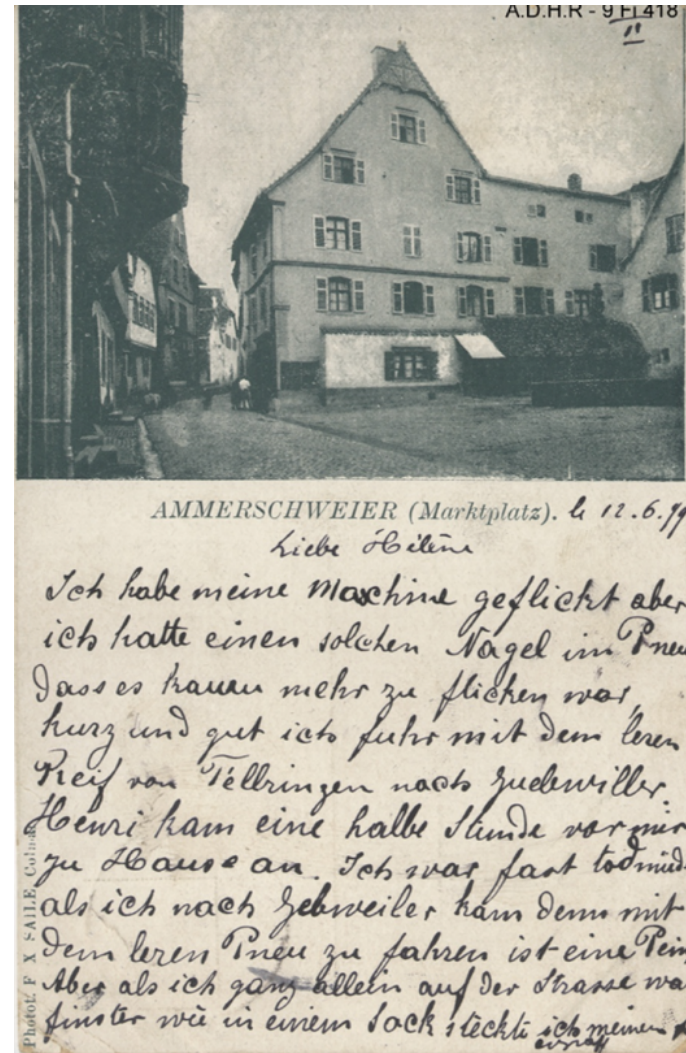 A.D.H.R - 9 FI 418
AMMERSCHWEIER (Marktplatz). le 12.6.99
Liebe Hélène
Ich habe meine Maschine geflickt aber
ich hatte einen solchen Nagel im Pneu
dass es kaum mehr zu flicken war,
kurz und gut ich fuhr mit dem leren
Reif von nach
Henri kam eine halbe Stunde vor mir
zu Hause an. Ich war fast todmüd
als ich nach Gebweiler kam denn mit
dem leren Pneu zu fahren ist eine Pein
Aber als ich ganz allein auf der Strasse wa
finster wie in einem Sack steckte ich meinen
Photot. F X SAILE, Colmar